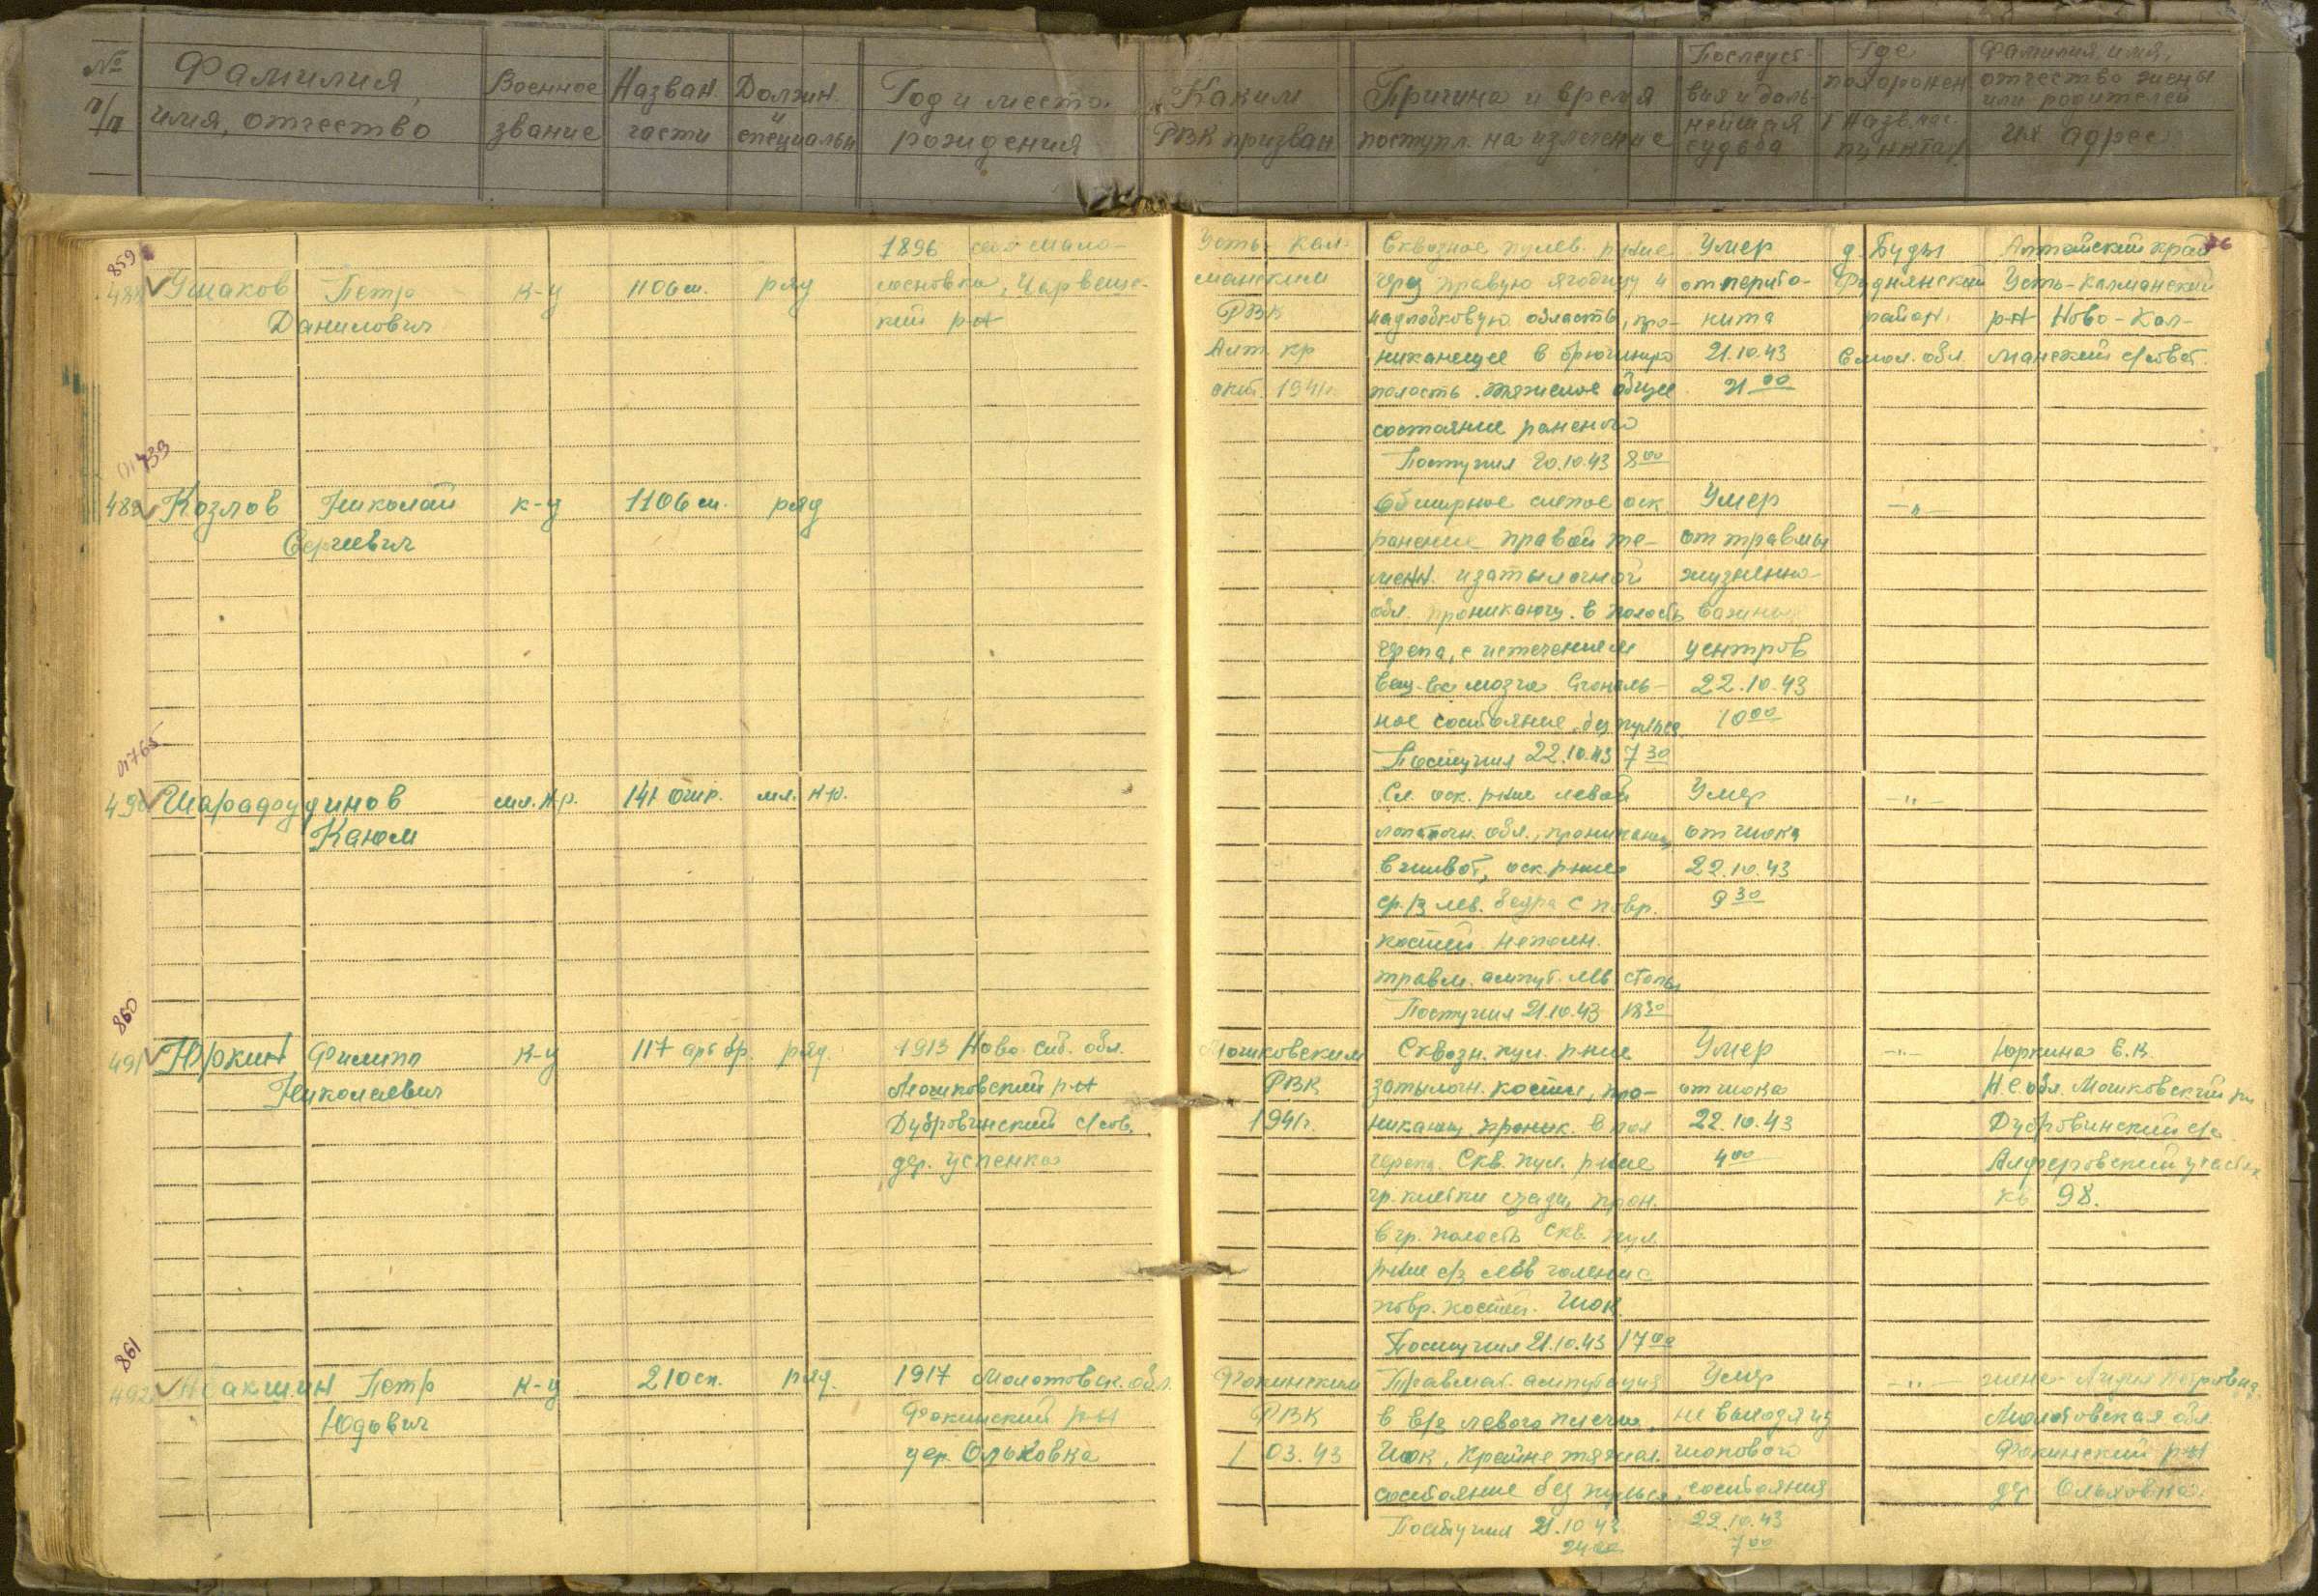 № п/п
Фамилия, имя, отчество
Военное звание
Назван. части
Должн. и специальн
Год и место рождения
Каким РВК призван
Причина и время поступл. на излечение
Последст вия и даль- нейшая судьба
Где похоронен
Фамилия, имя, отчество жены или родителей их адрес
859
76
488 Ушаков Петр
Данилович
к-ц
1106 сп.
ряд
1896
кий р-н
Усть-Кал-
манским
РВК
Алт. кр
окт. 1941г.
Сквозное пулев. р-ние
чрез правую ягодицу и
надлобковую область, про-
никающее в брюшную
полость. тяжелое общее
состояние раненого
Поступил 20.10.43 8 00
Умер
от перито-
нита
21.10.43
21 00
д. Буды
Руднянский
район
Смол. обл.
Алтайский край
Усть-Калманский
р-н Ново-Кал-
манский с/совет.
01733
489 Козлов Николай
Сергеевич
к-ц
1106 сп.
ряд
Обширное слепое оск.
ранение правой те-
менн. и затылочной
обл. проникающ. в полость
черепа, с истечением
вещ-ва мозга Агональ-
ное состояние, без пульса
Поступил 22.10.43 7 30
Умер
от травмы
жизненно-
важных
центров
22.10.43
10 00
-"-
01765
490 Шарафудинов
Каюм
мл. н-р.
141 ошр.
мл. н-р.
Сл. оск. р-ние левой
лопаточн. обл., проникающ
в живот, оск. р-ние
ср./з лев. бедра с повр.
костей. неполн.
травм. ампут. лев стопы
Поступил 21.10.43 18 30
Умер
от шока
22.10.43
9 30
-"-
860
491 Юркин Филипп
Николаевич
к-ц
117 арт бр.
ряд.
1913 Ново-Сиб. обл.
Мошковский р-н
Дубровинский с/сов.
дер. Успенка
Мошковским
РВК
1941г.
Сквозн. пул. р-ние
затылочн. кости, про-
никающ. проник. в пол
черепа. Скв. пул. р-ние
гр. клетки сзади, прон.
в гр. полость Скв. пул.
р-ние с/з лев голени с
повр. костей. Шок.
Поступил 21.10.43 17 00
Умер
от шока
22.10.43
4 00
-"-
Юркина Е.К.
Н.С. обл. Мошковский р-н
Дубровинский с/с
Алферовский участок
98.
861
492 Петр
Юдович
к-ц
210 сп.
ряд.
1917 Молотовск. обл.
Фокинский р-н
дер. Ольховка
Фокинским
РВК
1 03.43
Травмат. ампутация
в в/з левого плеча,
Шок, Крайне тяжел.
состояние без пульса.
Поступил 21.10.43.
24 00
Умер
не выходя из
шокового
состояния
22.10.43
7 00
-"-
жена - Лидия Петровна
Молотовская обл.
Фокинский р-н
дер. Ольховка.